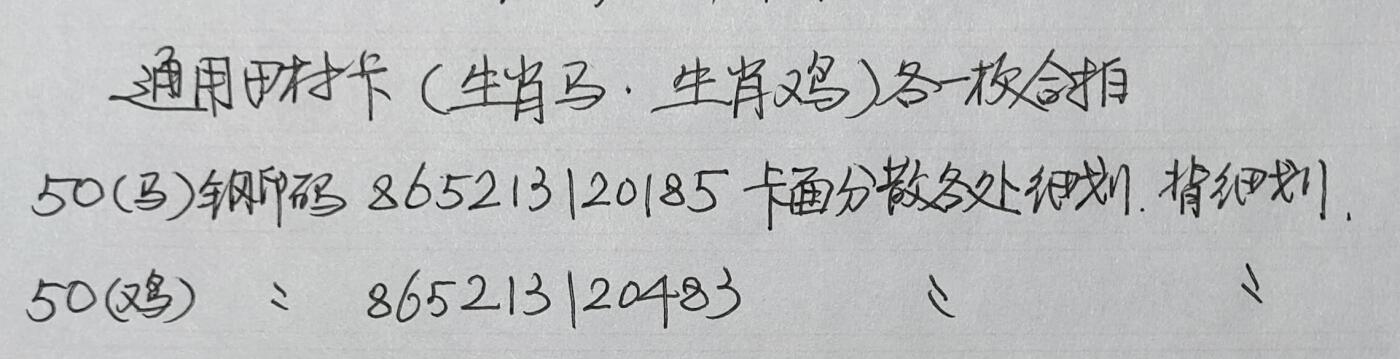 通用田村卡（生肖马·生肖鸡）各一枚合拍
50(马)钢印码 865213120185 卡面分散各处细划.背细划.
50(鸡) 〃 865213120483 〃 〃